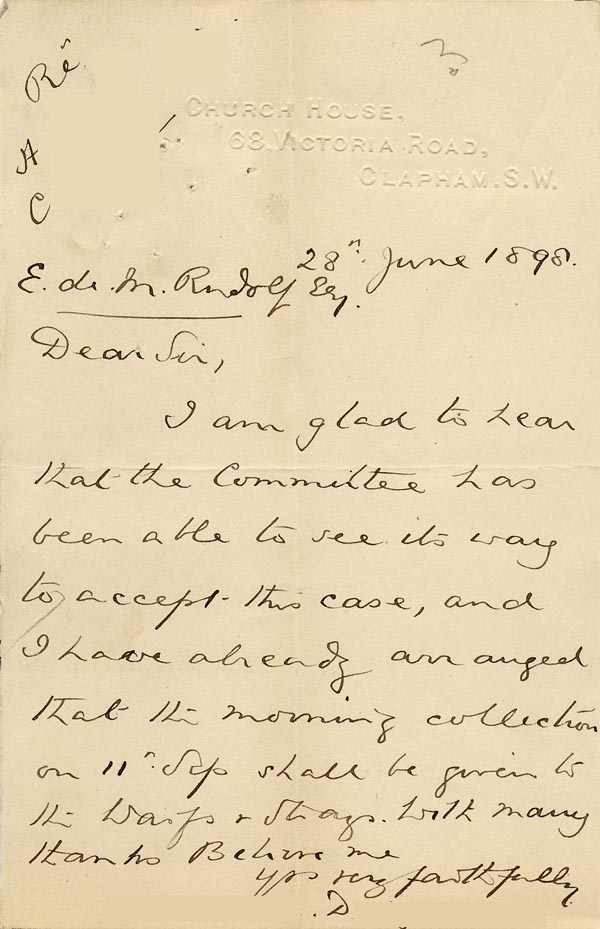 Re
A
C
CHURCH HOUSE,
68, VICTORIA ROAD,
CLAPHAM. S.W.
28th June 1898.
E. de. M. Rudolf Esq.
Dear Sir,
I am glad to hear
that the Committee has
been able to see its way
to accept this case, and
I have already arranged
that the morning collection
on 11th Sep shall be given to
the Waifs & Strays. With many
thanks Believe me
yrs very faithfully
D